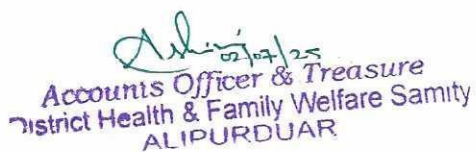 02/07/25
Accounts Officer & Treasure
District Health & Family Welfare Samity
ALIPURDUAR